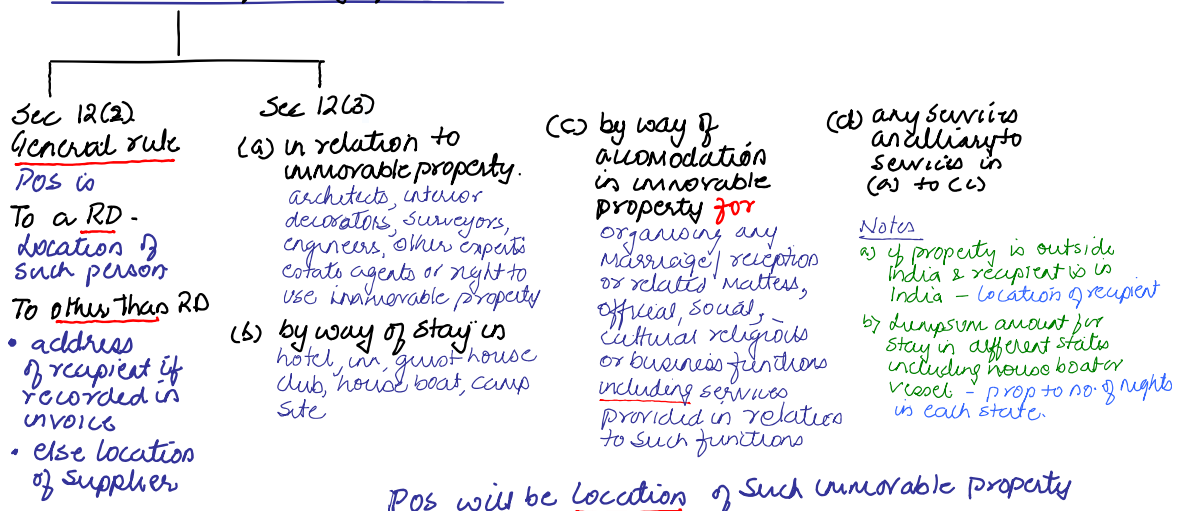 Sec 12(2)
General rule
POS is
To a RD -
Location of
such person
To other than RD
• address
of recipient if
recorded in
invoice
• else location
of supplier
Sec 12(3)
(a) in relation to
immovable property.
architects, interior
decorators, surveyors,
engineers, other experts
estate agents or right to
use immovable property
(b) by way of stay in
hotel, inn, guest house
club, house boat, camp
site
(c) by way of
accomodation
in immovable
property for
organising any
marriage/reception
or related matters,
official, social,
cultural religious
or business functions
including services
provided in relation
to such functions
(d) any services
ancilliary to
services in
(a) to (c)
Notes
a) if property is outside
India & recipient is in
India - location of recipient
b) lumpsum amount for
stay in different states
including house boat or
vessel - prop to no. of nights
in each state.
POS will be location of such immovable property